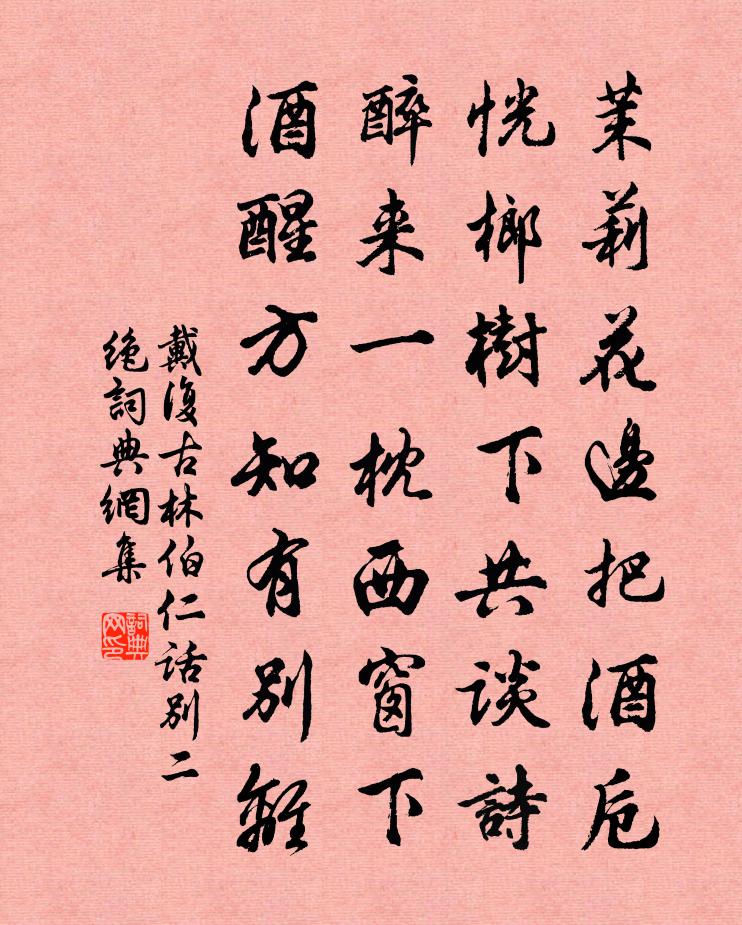 茉莉花邊把酒卮
恍榔樹下共談詩
醉来一枕西窗下
酒醒方知有別離
戴復古林伯仁話別二
絶詞典網集
詞典网印